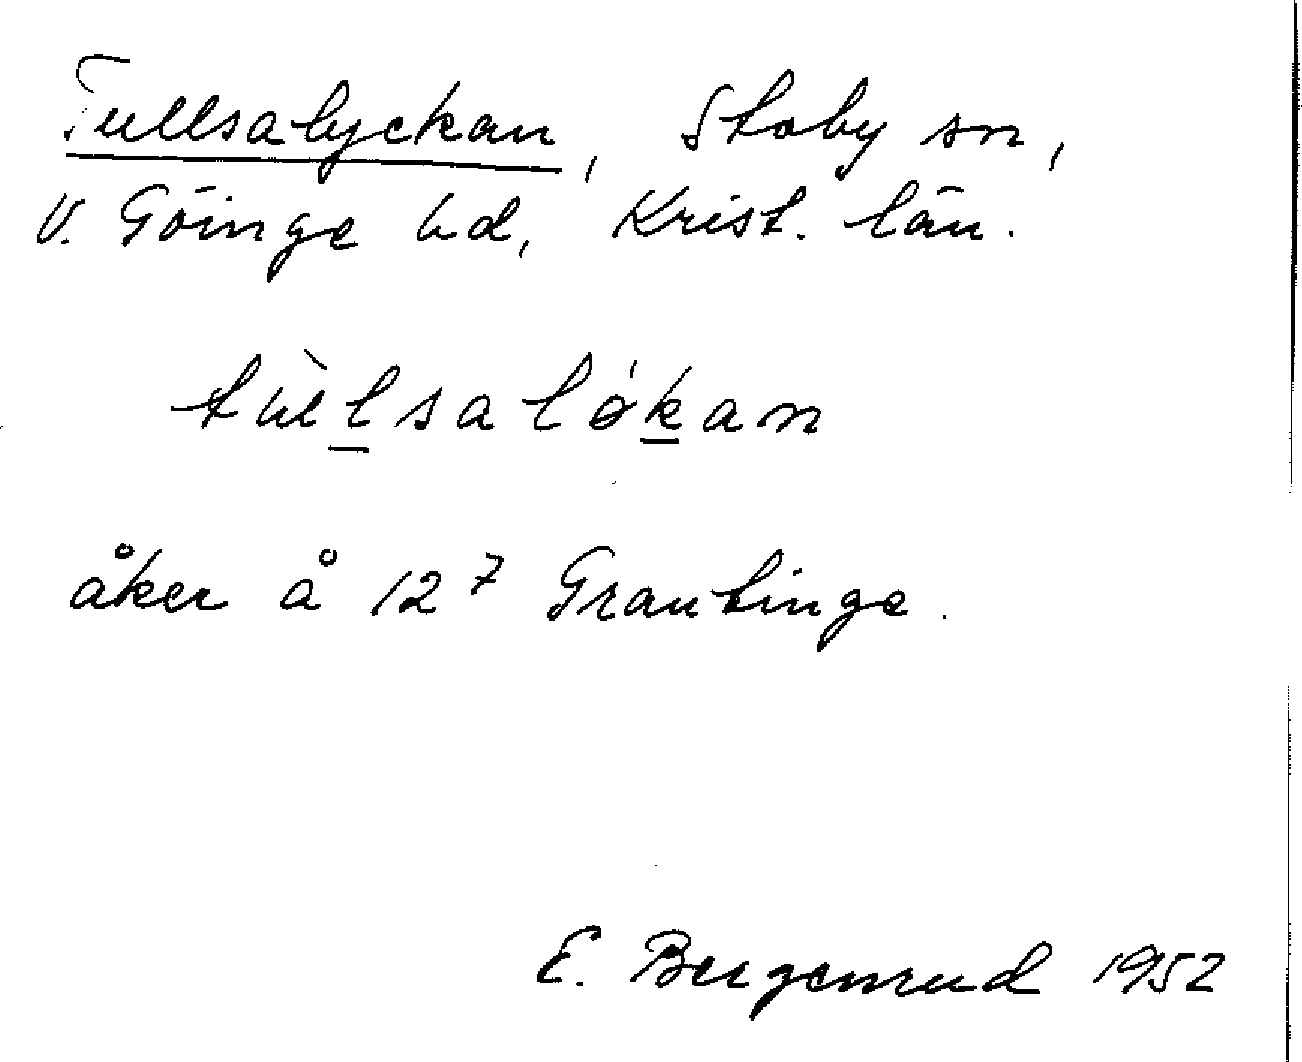 Tullsalyckan, Stoby sn,
V. Göinge hd, Krist. län.
tùlsaló̱kan
åker å 12⁷ Grantinge.
E. Bergenrud 1952